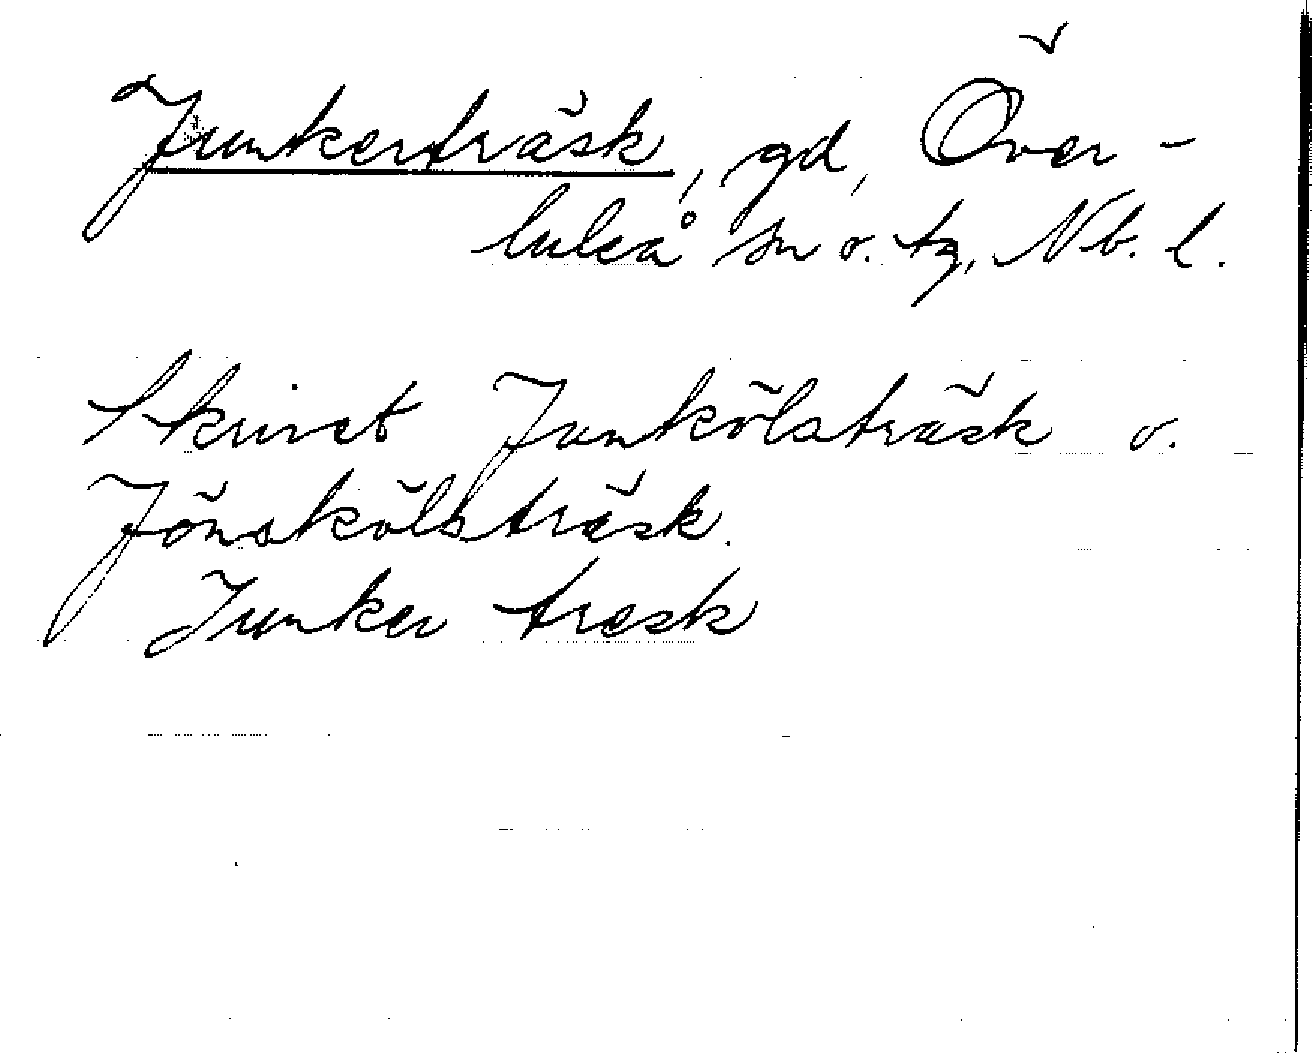 Junkerträsk, gd, Över-
luleå sn o. tg, Nb. l.
Skrivet Junkölsträsk o.
Jönskölsträsk.
Junker tresk